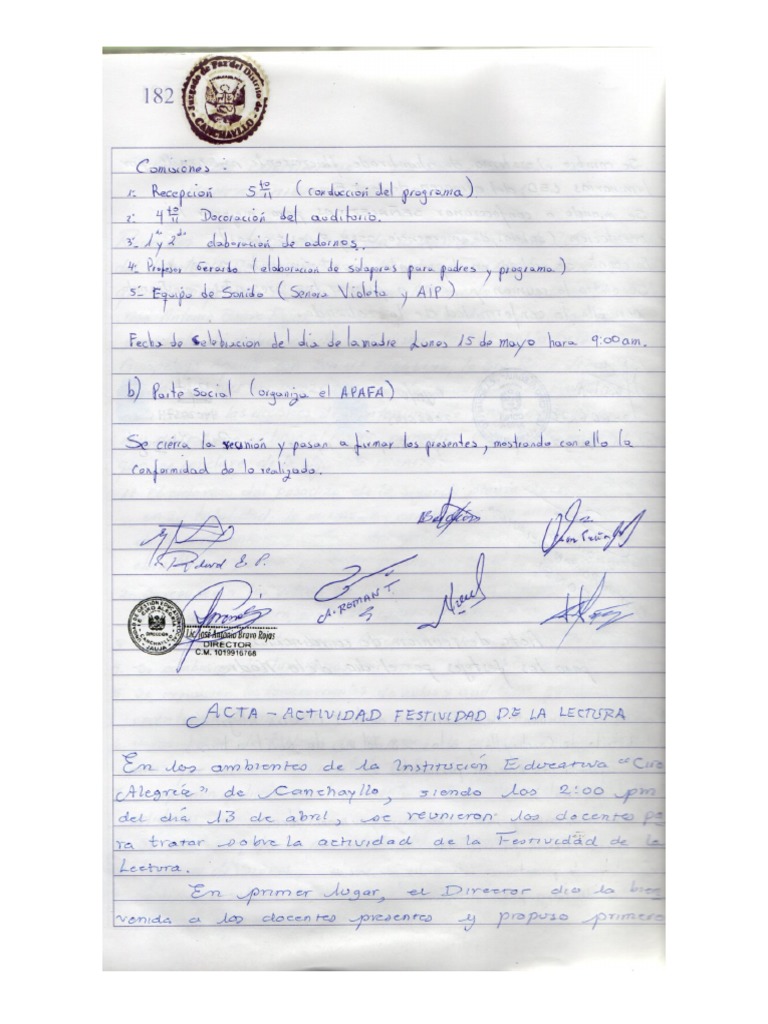 182
Juzgado de Paz del Distrito de
CANCHAYLLO
Comisiones :
1.- Recepcion 5to/11 (conducción del programa)
2.- 4to/11 Docoración del auditorio.
3.- 1ro y 2do elaboración de adornos.
4.- Profesor Gerardo (elaboracion de solaperas para padres y programa)
5.- Equipo de Sonido (Señora Violeta y AIP)
Fecha de celebracion del dia de la madre Lunes 15 de mayo hora 9:00 am.
b) Parte social (organiza el APAFA)
Se cierra la reunión y pasan a firmar los presentes, mostrando con ello la
conformidad de lo realizado.
A. ROMAN T.
DIRECCION
CANCHAYLLO
JAUJA
Lic. José Antonio Bravo Rojas
DIRECTOR
C.M. 1019916766
ACTA - ACTIVIDAD FESTIVIDAD DE LA LECTURA
En los ambientes de la Institución Educativa "Ciro
Alegría" de Canchayllo, siendo las 2:00 pm
del día 13 de abril, se reunieron los docentes pa
ra tratar sobre la actividad de la Festividad de la
Lectura.
En primer lugar, el Director dio la bien
venida a los docentes presentes y propuso primero